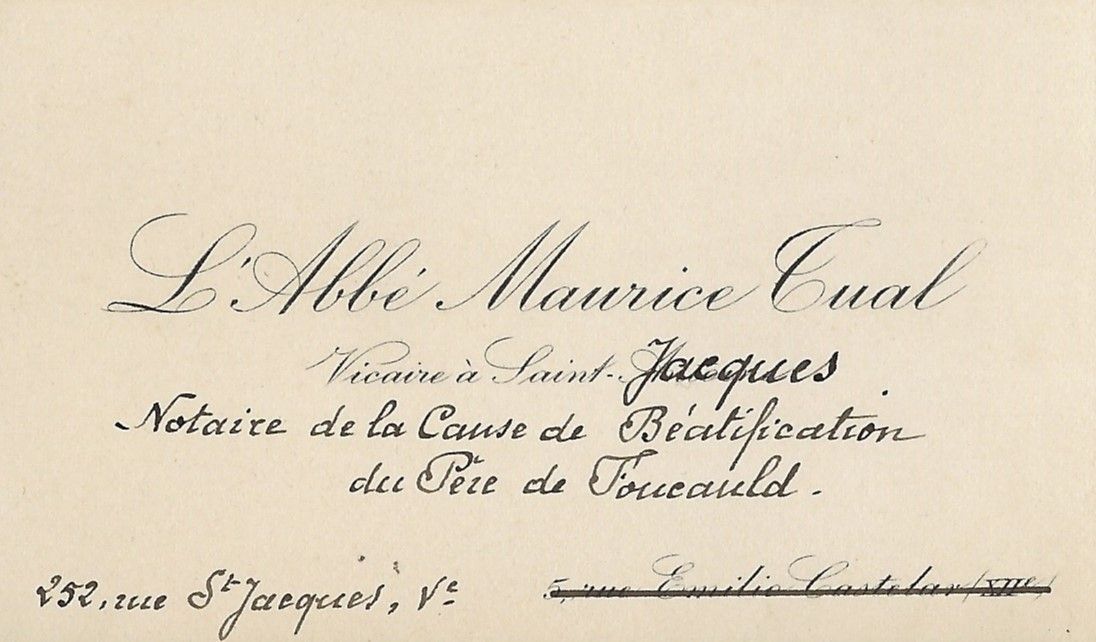 L'Abbé Maurice Tual
Vicaire à Saint-Jacques
Notaire de la Cause de Béatification
du Père de Foucauld.
252, rue St Jacques, Ve
5, rue Emilio Castelar (XIIe)